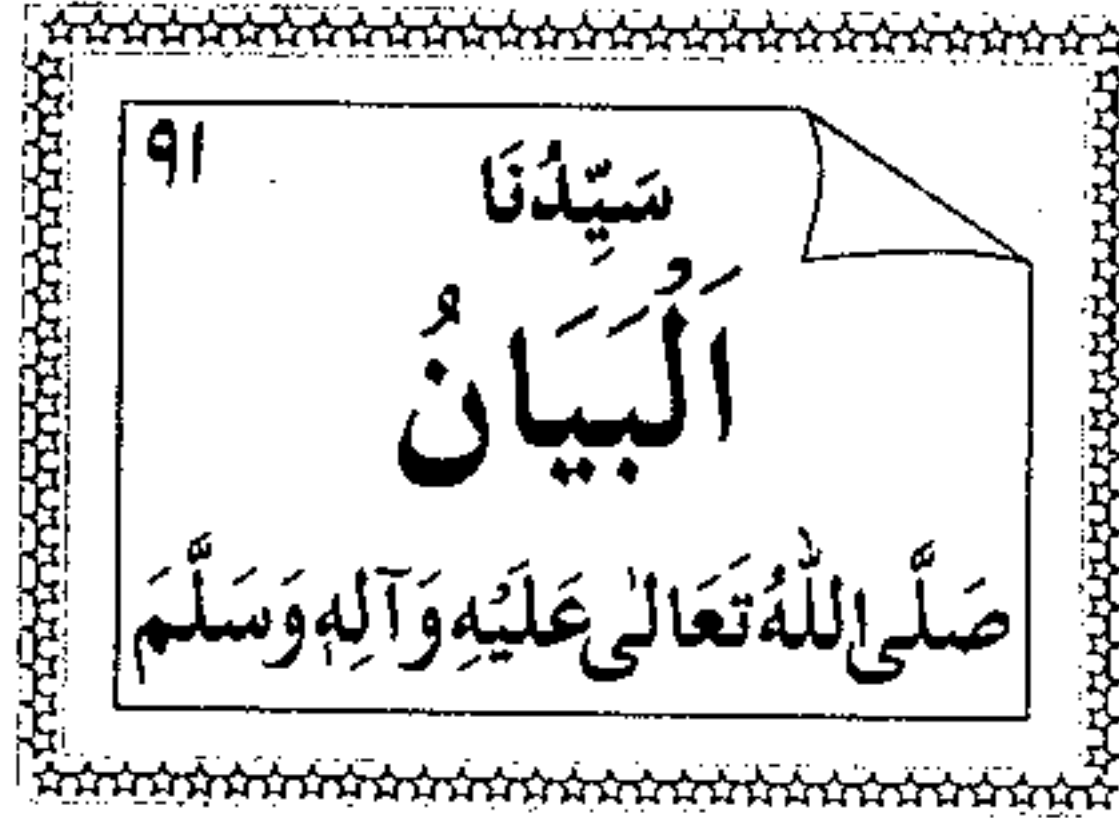 ۹۱
سَيِّدُنَا
اَلْبَيَانُ
صَلَّى اللّٰهُ تَعَالٰى عَلَيْهِ وَآلِهٖ وَسَلَّمَ